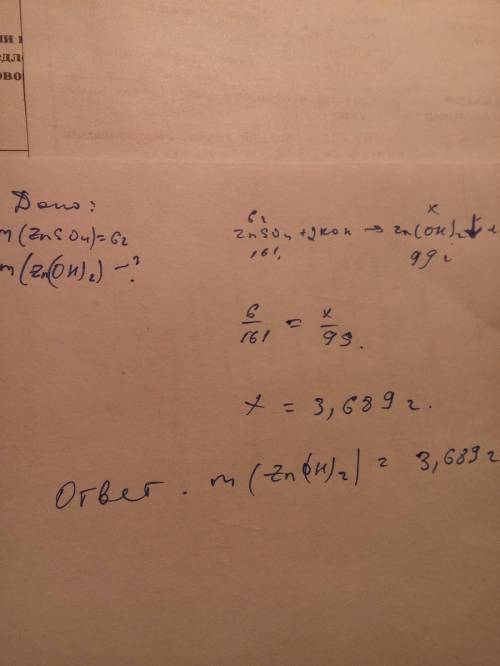 ли
едл
ово
Дано:
m(ZnSO4)=6г
m(Zn(OH)2) -?
6г x
ZnSO4+2KOH → Zn(OH)2↓+
161. 99 г
6/161 = x/99.
x = 3,689 г.
Ответ. m (Zn(OH)2) = 3,689 г